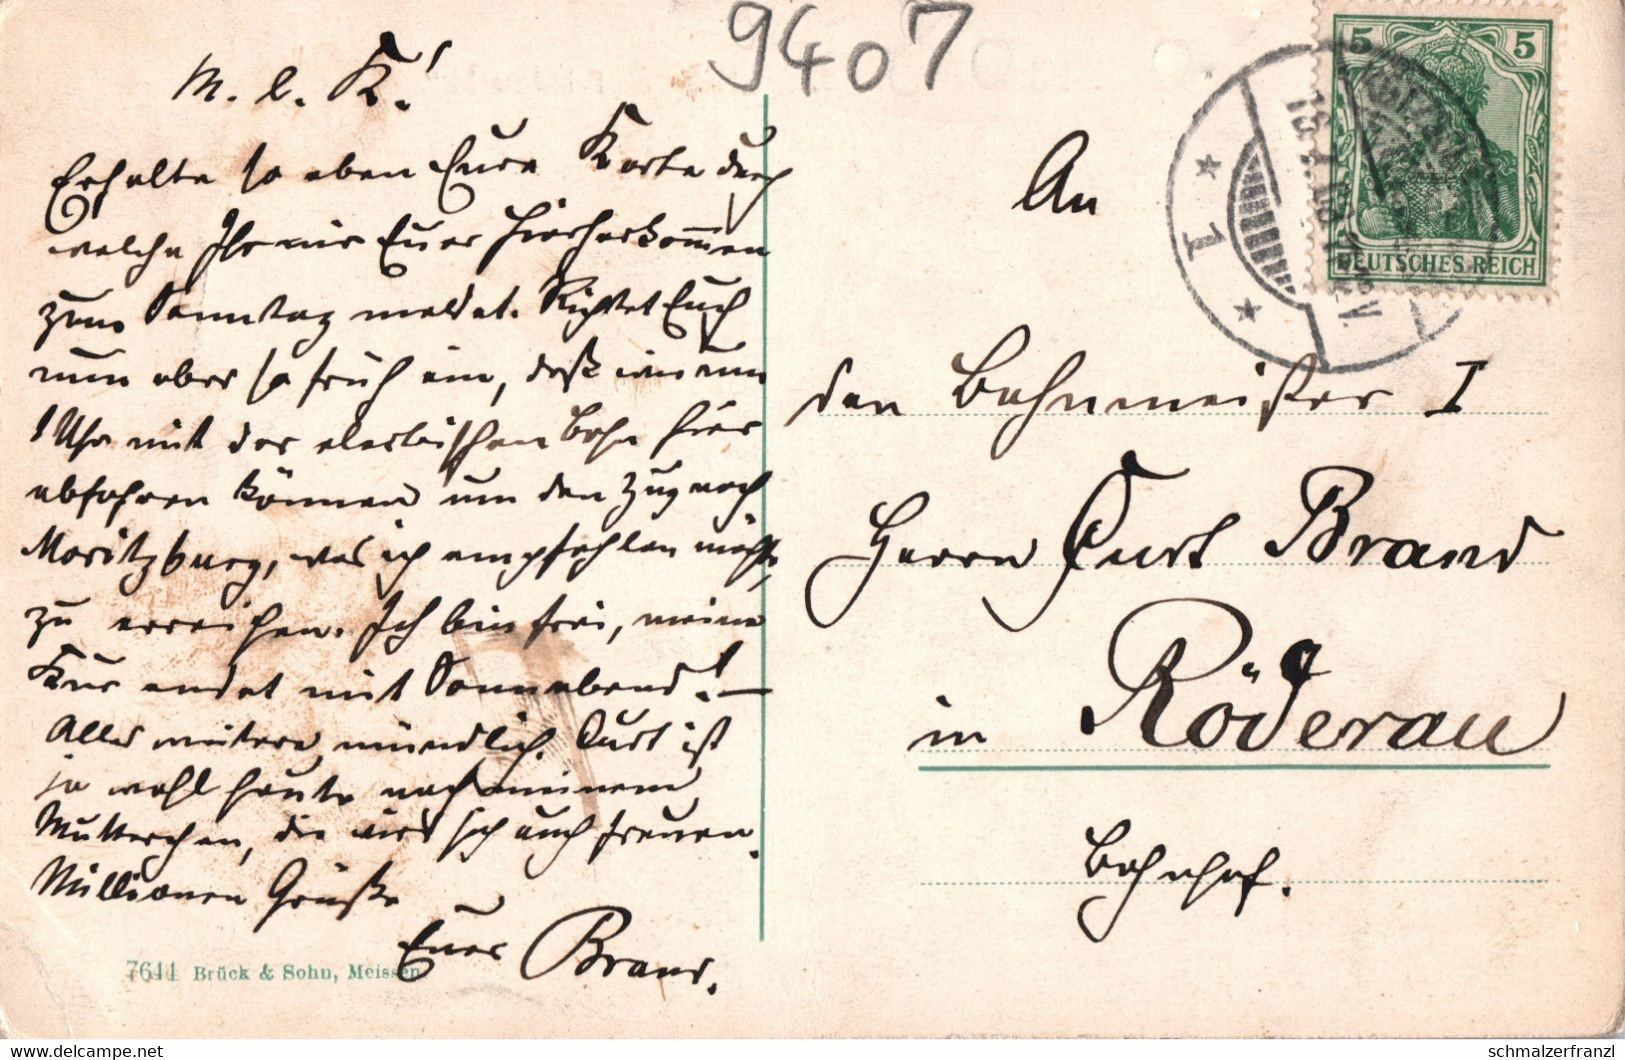 9407
M. l. K.!
Erhalte so eben Eure Karte durch
welche Ihr mir Euer Hierherkommen
zum Sonntag meldet. Richtet Euch
nun aber so früh ein, daß wir um
1 Uhr mit der elektrischen Bahn hier
abfahren können um den Zug nach
Moritzburg, was ich empfehlen möchte,
zu erreichen. Ich bin frei, meine
Kur endet mit Sonnabend! —
Alles weitere mündlich. Curt ist
ja wohl heute nach meinem
Mutterchen, die wird sich auch freuen.
Millionen Grüße
Euer Brand.
7644 Brück & Sohn, Meissen
5 5
DEUTSCHES REICH
* 1 *
An
den Bahnmeister I
Herrn Curt Brand
in Röderau
Bahnhof.
schmalzerfranzl
www.delcampe.net